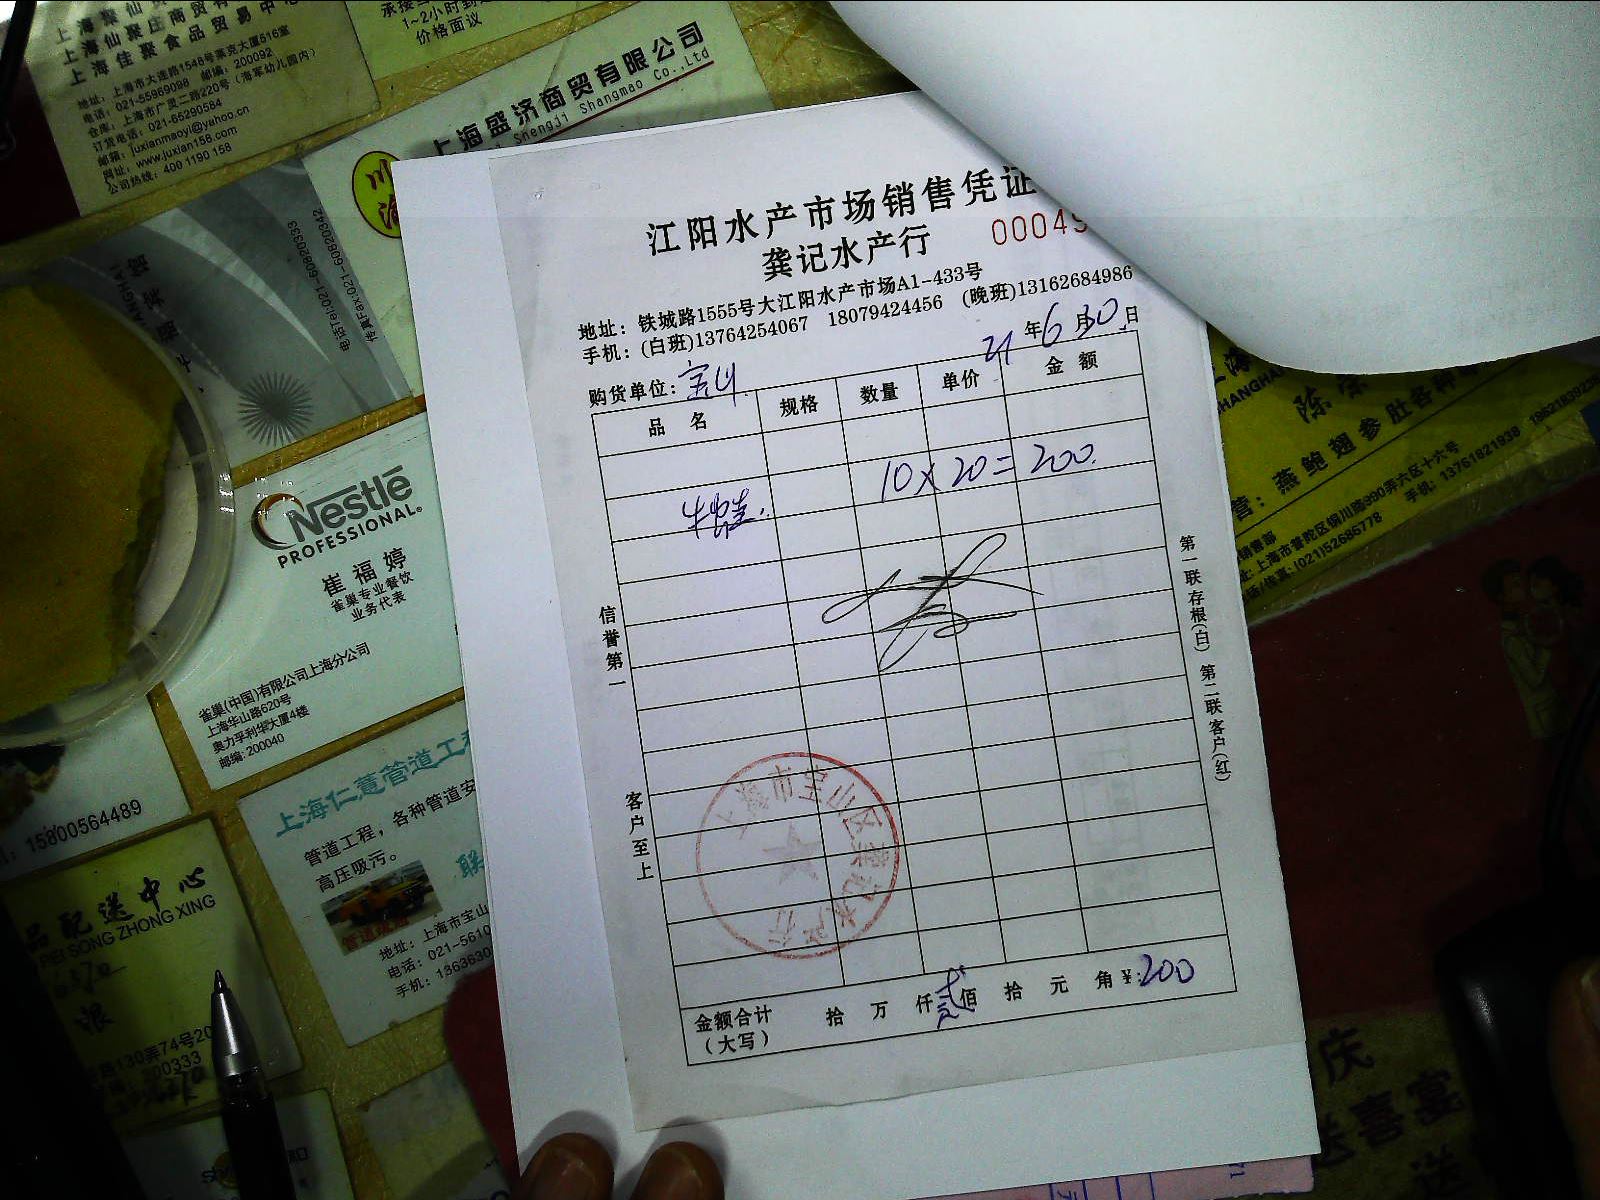 上海仙聚庄商贸有
上海佳聚食品贸易中心
地址：上海市大连路1548号莱克大厦516室
电话：021-55969098 邮编：200092
仓库：上海市广灵二路220号（海军幼儿园内）
订货电话：021-65290584
邮箱：juxianmaoyi@yahoo.cn
网址：www.juxian158.com
公司热线：400 1190 158
1~2小时到
价格面议
上海盛济商贸有限公司
Shengji Shangmao Co.,Ltd
川
电话Tel:021-60820333
传真Fax:021-60820342
江阳水产市场销售凭证
龚记水产行
00049
地址：铁城路1555号大江阳水产市场A1-433号
手机：(白班)13764254067 18079424456 (晚班)13162684986
21年6月30日
购货单位：宝山
品名 规格 数量 单价 金额
10×20=200.
牛蛙.
信誉第一
客户至上
第一联存根(白) 第二联客户(红)
上海市宝山区龚记水产行
金额合计（大写） 拾 万 仟 贰佰 拾 元 角 ¥:200
Nestlé
PROFESSIONAL
崔福婷
雀巢专业餐饮
业务代表
雀巢(中国)有限公司上海分公司
上海华山路620号
奥力孚利华大厦4楼
邮编: 200040
15800564489
上海仁薏管道工程
管道工程，各种管道安
高压吸污。
联
地址：上海市宝山
电话：021-5610
手机：1363630
品配送中心
PEI SONG ZHONG XING
路130弄74号20
燕鲍翅参肚各种
销售部
址: 上海市普陀区铜川路990弄六区十六号
话/传真: (021)52685778 手机: 13761821938
庆
送喜宴
送